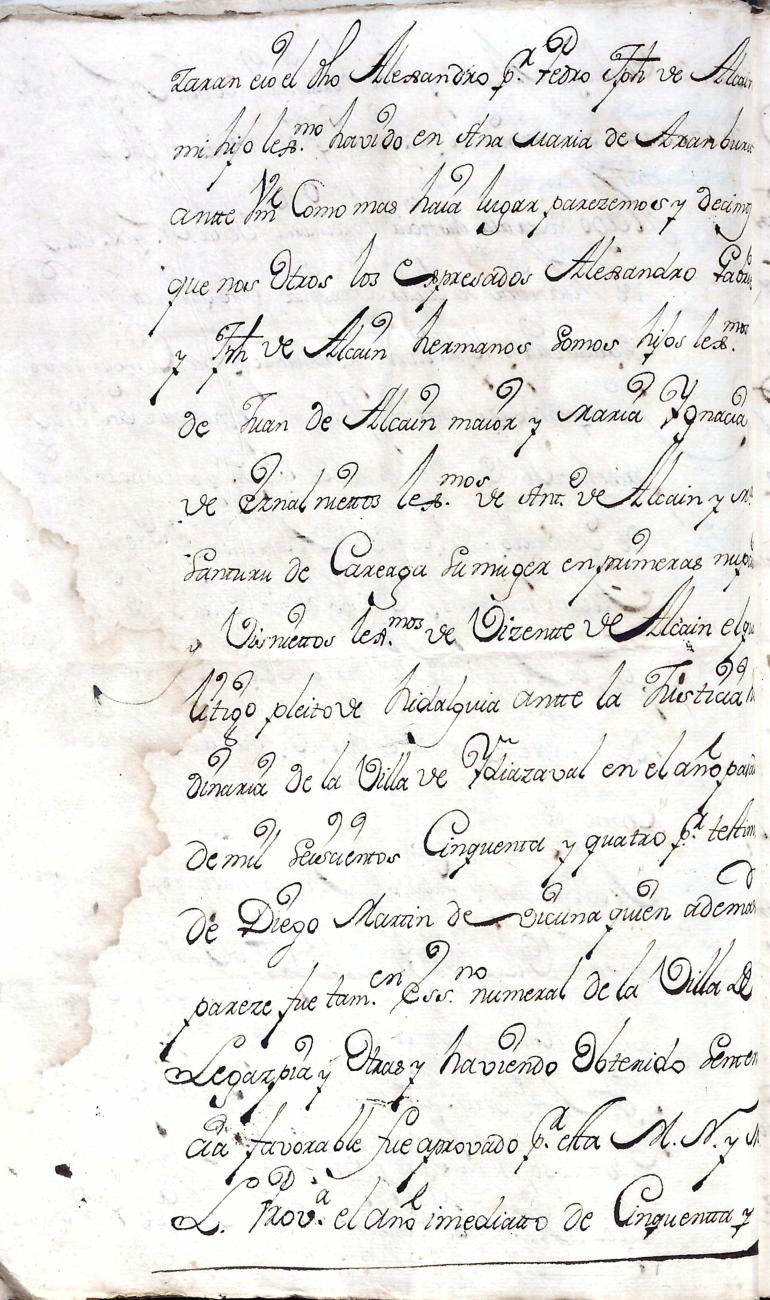 el dho Alexandro p.r Pedro Jph de Alcain
mi hijo lex.mo havido en Ana Maria de Aramburu
antte Vm Como mas haia lugar parezemos y decimos
que nos Otros los Expresados Alexandro
y Jph de Alcain hermanos somos hijos lex.mos
de Juan de Alcain maior y Maria Ygnacia
de niettos lex.mos de Ant.o de Alcain y
Santuru de Careaga su muger en primeras
y Visniettos lex.mos de Vizentte de Alcain el
litigo pleito de hidalguia antte la Justicia
dinaria de la Villa de Ydiazaval en el año
de mil Seiscientos Cinquenta y quatro p.r
de Diego Martin de Vicuna quien ademas
pareze fue tam.en Ess.no numeral de la Villa de
Legazpia y Otras y haviendo Obtenido
cia favorable fue aprovado p.r esta M. N. y M.
L. Prov.a el año imediatto de Cinquentta y